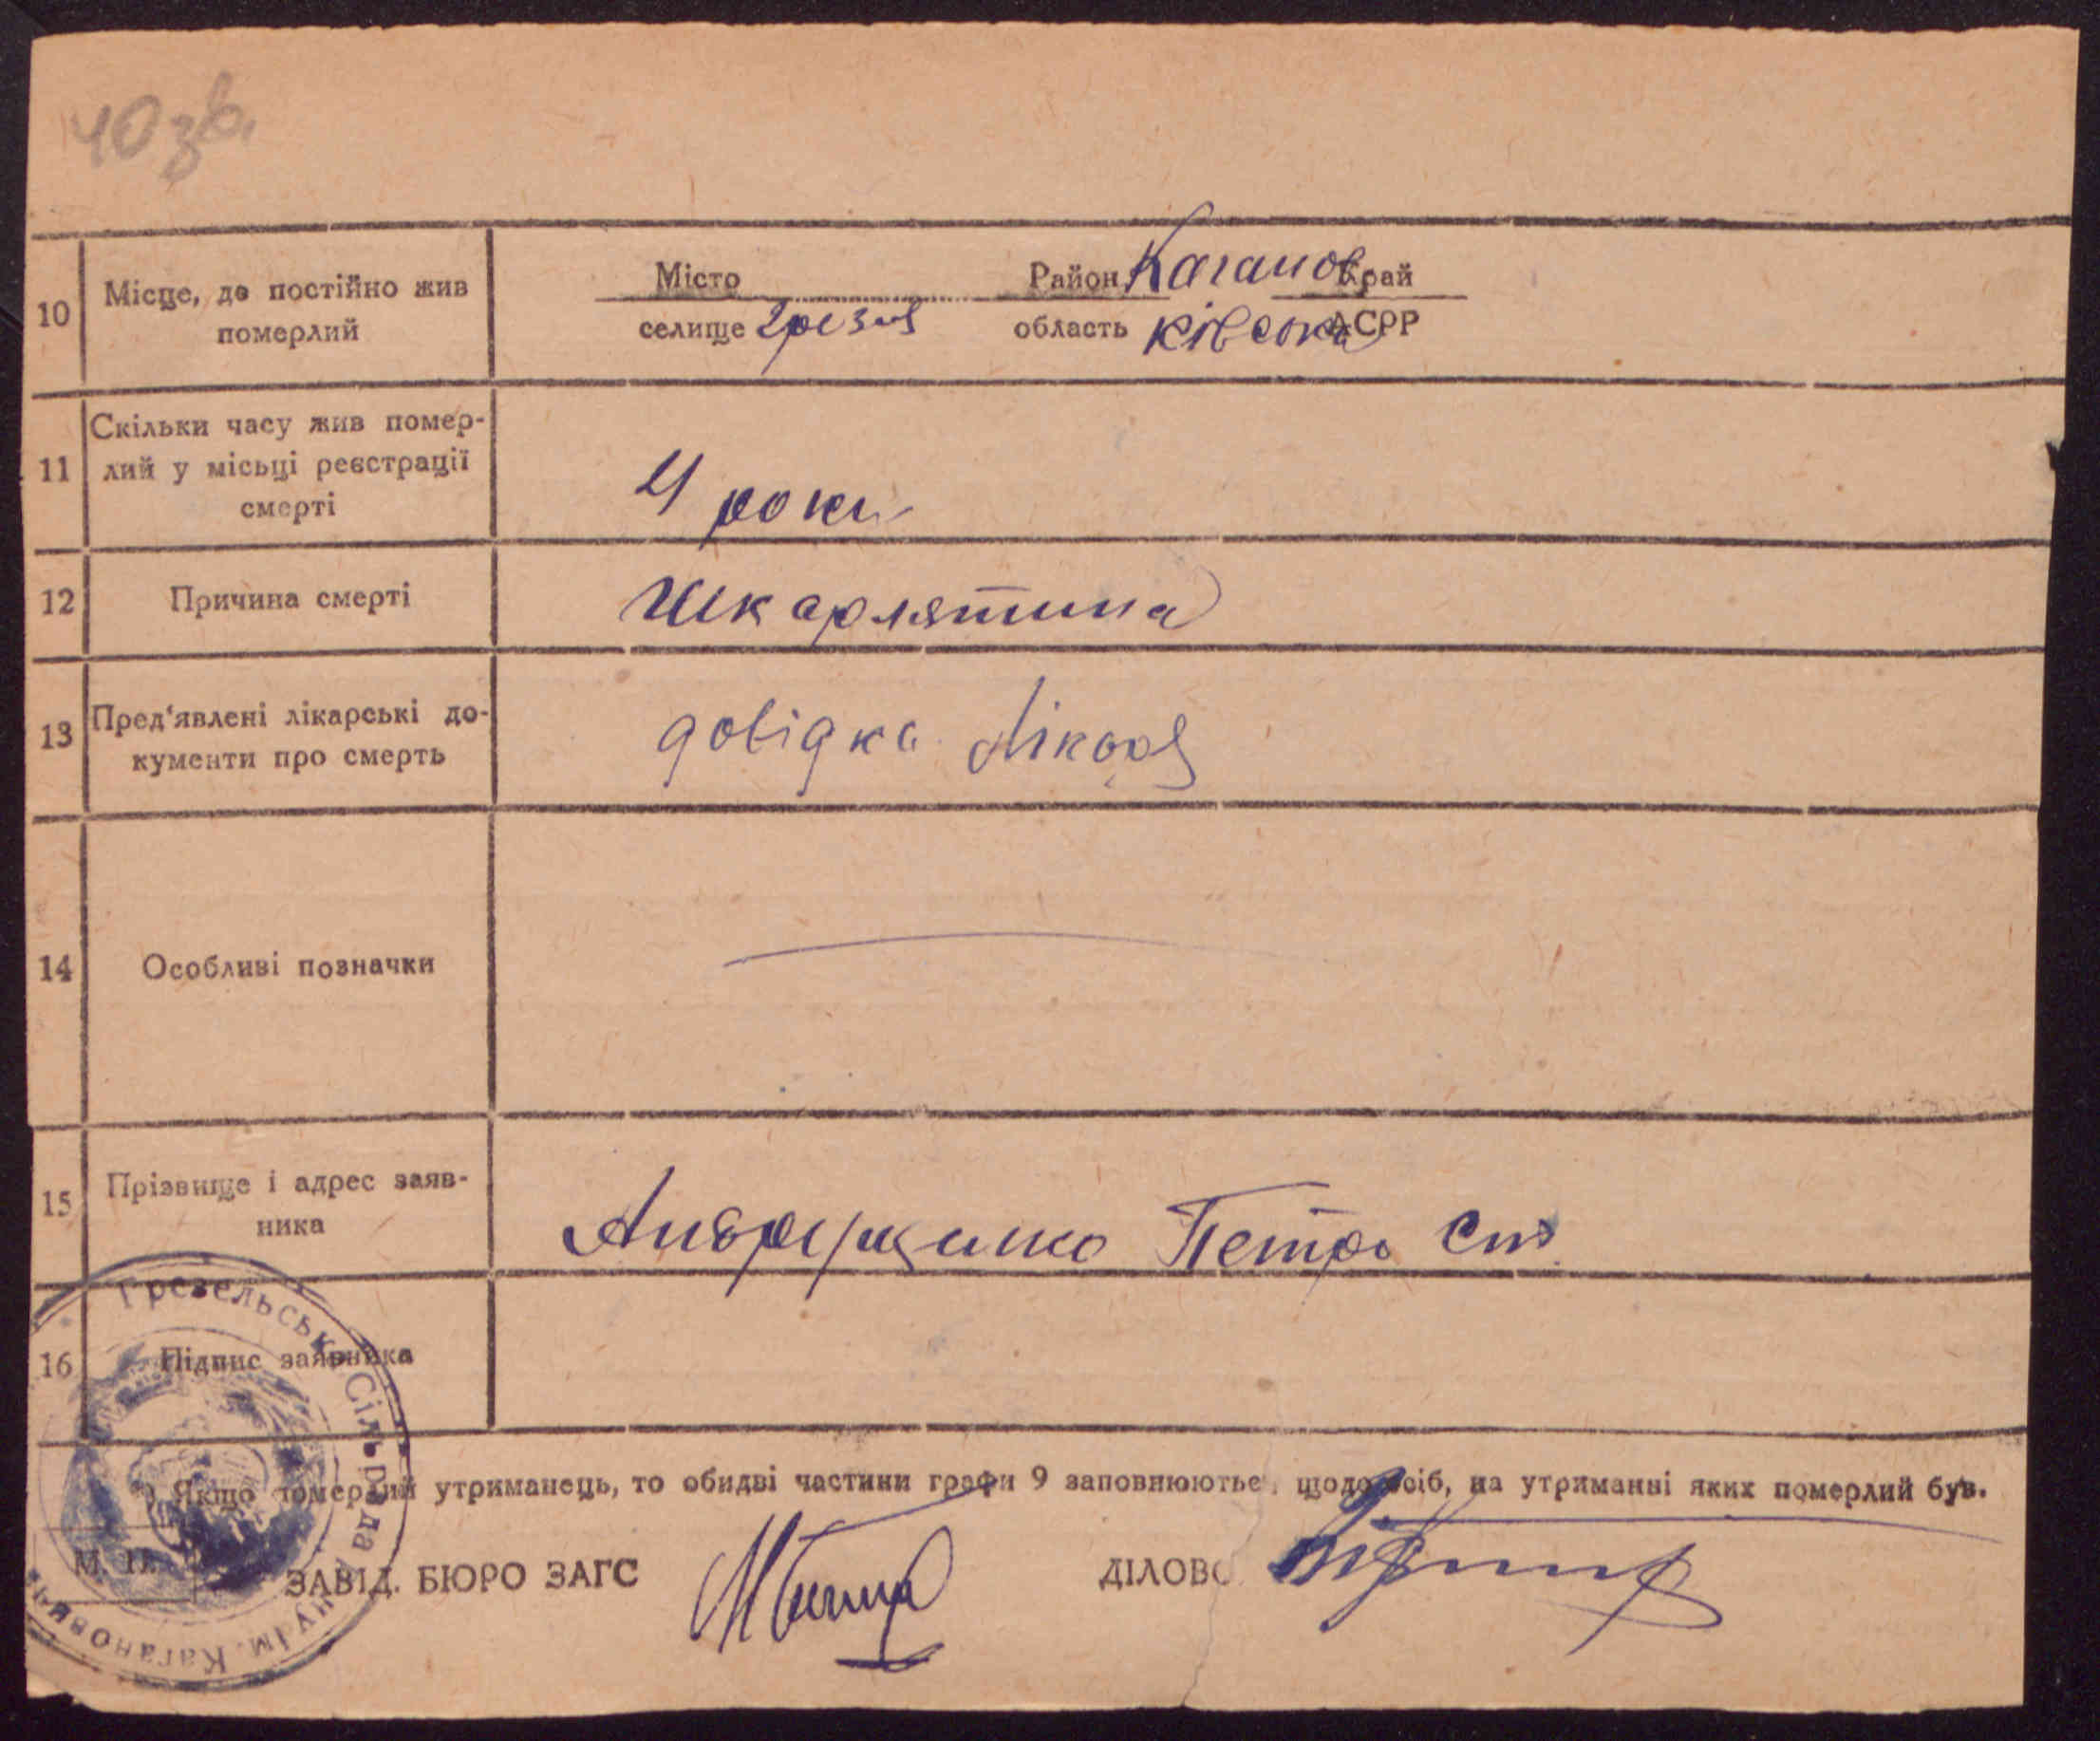 40 зв.
10 Місце, де постійно жив померлий
Місто Район Каганов. Край
селище область Ківська АСРР
11 Скільки часу жив помер-
лий у місьці реєстрації
смерті
4 роки
12 Причина смерті Шкарлятина
13 Пред'явлені лікарські до-
кументи про смерть
довідка лікаря
14 Особливі позначки
15 Прізвище і адрес заяв-
ника
Петро
16 Підпис заявника
Якщо померлий утриманець, то обидві частини графи 9 заповнюютьс щодо осіб, на утриманні яких померлий був.
М. П.
ЗАВІД. БЮРО ЗАГС
ДІЛОВО
Грезельська Сільрада
ім. Кагановича